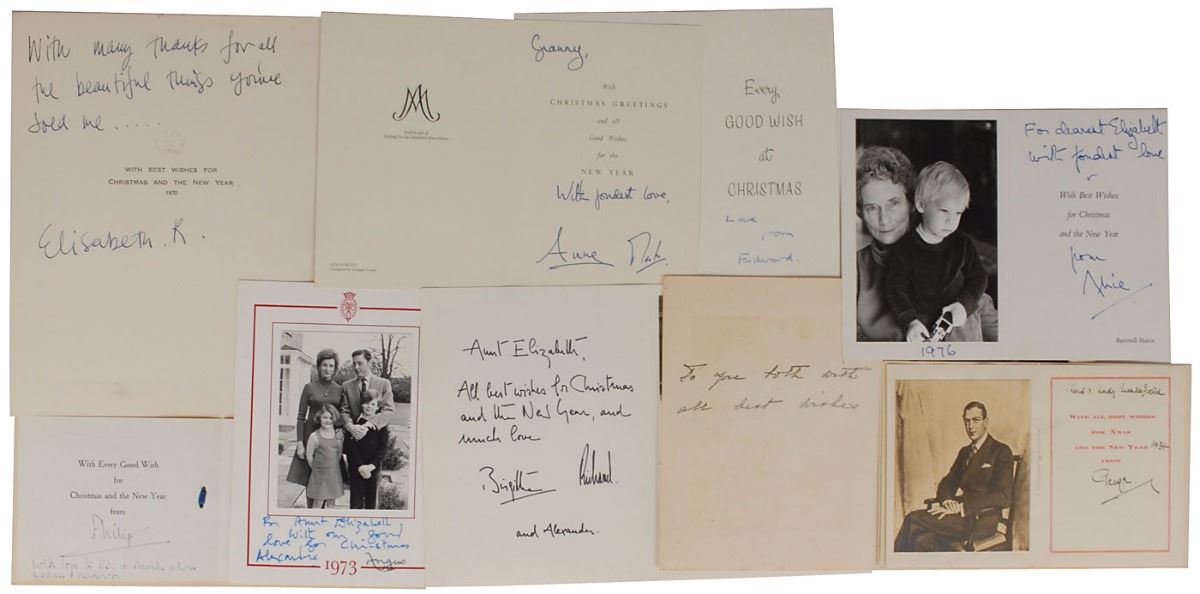 With many thanks for all
the beautiful things you've
sold me .....
WITH BEST WISHES FOR
CHRISTMAS AND THE NEW YEAR
1970
Elizabeth. R.
Granny,
With
CHRISTMAS GREETINGS
and all
Good Wishes
for the
NEW YEAR
With fondest love,
Anne Mark.
Every
GOOD WISH
at
CHRISTMAS
Love
from
Edward.
For dearest Elizabeth
with fondest love
With Best Wishes
for Christmas
and the New Year
from
Alice
1976
Barnwell Manor
With Every Good Wish
for
Christmas and the New Year
from
Philip
For Aunt Elizabeth,
With our good
love for Christmas
Alexandra
Angus
1973
Aunt Elizabeth,
All best wishes for Christmas
and the New Year, and
much love
Birgitte Richard.
and Alexander.
To you both with
all best wishes
Lord & Lady
WITH ALL BEST WISHES
FOR XMAS
AND THE NEW YEAR 1934
FROM
George